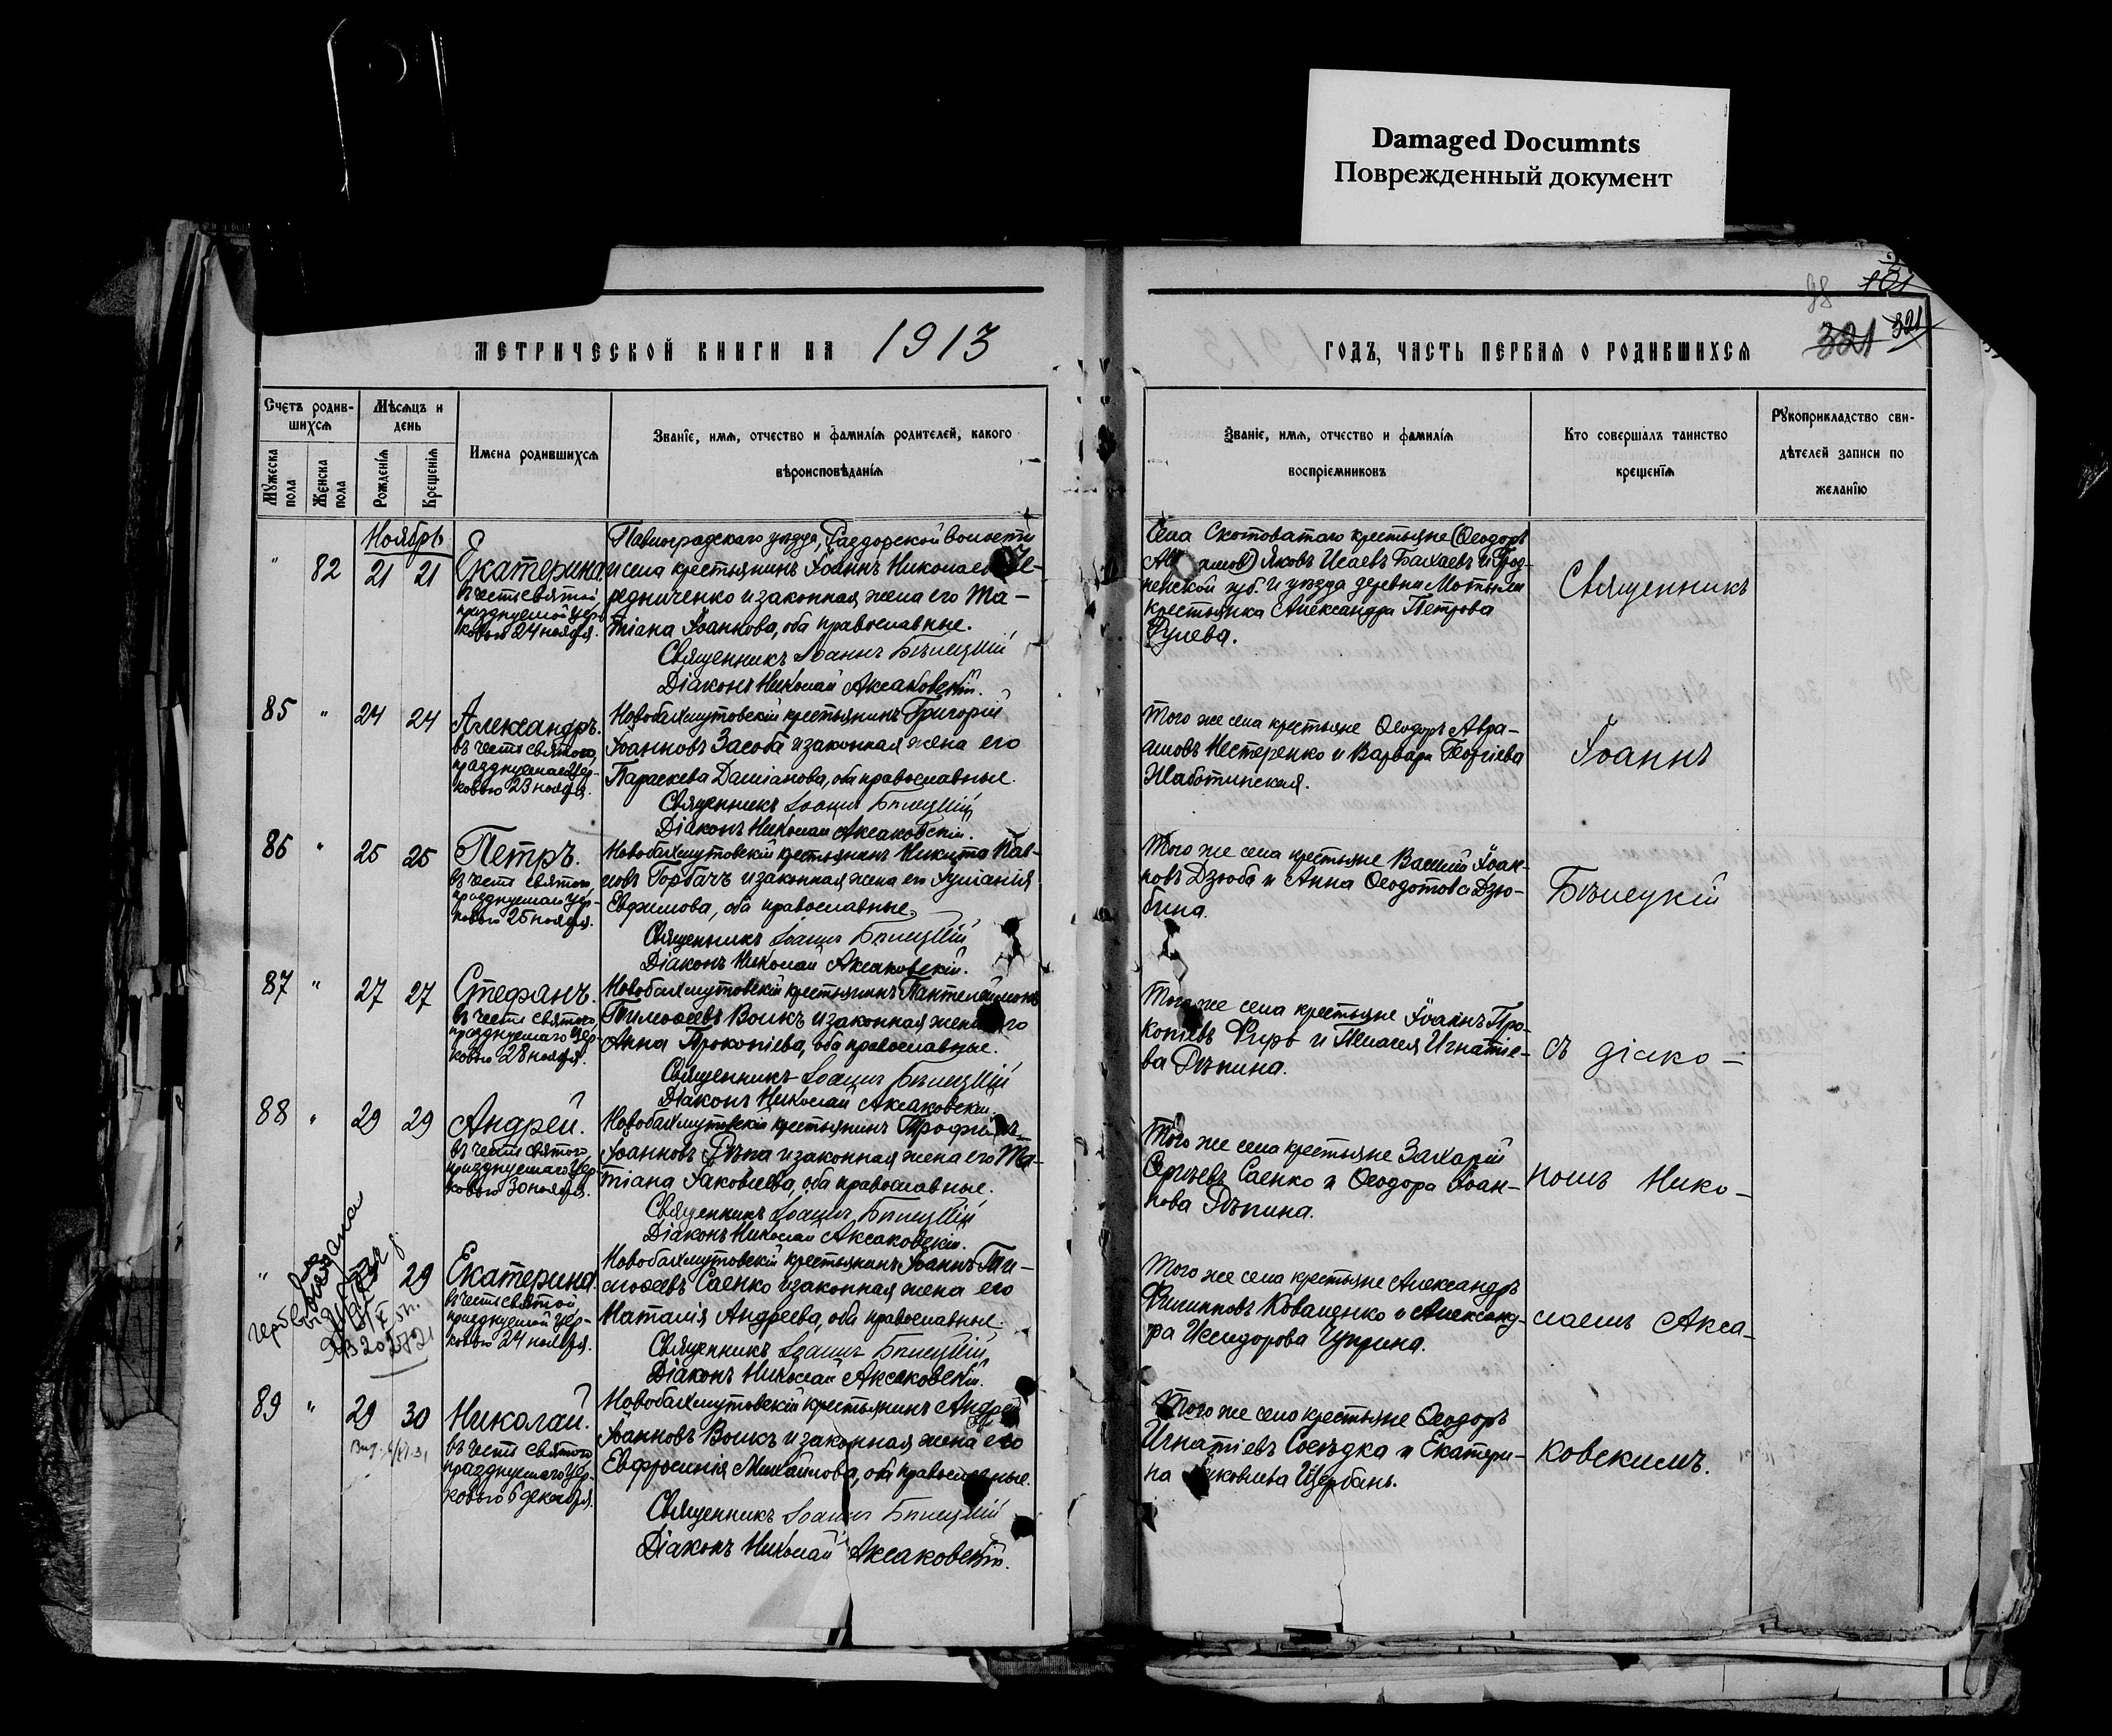 Damaged Documnts
Поврежденный документ
98 101
321 321
МЕТРИЧЕСКОЙ КНИГИ НА 1913
ГОДЪ, ЧАСТЬ ПЕРВАЯ О РОДИВШИХСЯ
Счетъ родив-
шихся
Мѣсяцъ и
день
Мужеска пола
Женска пола
Рожденія
Крещенія
Имена родившихся
Званіе, имя, отчество и фамилія родителей, какого
вѣроисповѣданія
Званіе, имя, отчество и фамилія
воспріемниковъ
Кто совершалъ таинство
крещенія
Рукоприкладство сви-
дѣтелей записи по
желанію
Ноябрь
" 82 21 21
Екатерина.
въ честь святой
празднуемой цер-
ковью 24 ноября.
Павлоградскаго уѣзда, Раздорской волости
и села крестьянинъ Іоаннъ Николаевъ Че-
редниченко и законная жена его Та-
тіана Іоаннова, оба православные.
Священникъ Іоаннъ Бѣлецкій
Діаконъ Николай Аксаковскій.
Села Скотоватаго крестьяне (Ѳеодоръ
Яковъ Исаевъ Бахаевъ и Грод-
ненской губ. и уѣзда деревни Мотыли
крестьянка Александра Петрова
85 " 24 24
Александръ.
въ честь святого,
празднуемаго цер-
ковью 23 ноября.
Новобахмутовскій крестьянинъ Григорій
Іоанновъ Засоба и законная жена его
Параскева Даміанова, оба православные.
Священникъ Іоаннъ Бѣлецкій
Діаконъ Николай Аксаковскій.
Того же села крестьяне Ѳеодоръ Авра-
амовъ Нестеренко и Варвара Георгіева
Жаботинская.
86 " 25 25
Петръ.
въ честь святого,
празднуемаго цер-
ковью 25 ноября.
Новобахмутовскій крестьянинъ Никита Пав-
ловъ Горбачъ и законная жена его Іуліанія
Евфимова, оба православные.
Священникъ Іоаннъ Бѣлецкій
Діаконъ Николай Аксаковскій.
Того же села крестьяне Василій Іоан-
новъ Дзюба и Анна Ѳеодотова Дзю-
бина.
87 " 27 27
Стефанъ.
въ честь святого
празднуемаго цер-
ковью 28 ноября.
Новобахмутовскій крестьянинъ Пантелеймонъ
Тимоѳеевъ Волкъ и законная жена его
Анна Прокопіева, оба православные.
Священникъ Іоаннъ Бѣлецкій
Діаконъ Николай Аксаковскій.
Того же села крестьяне Іоаннъ Про-
копіевъ и Пелагея Игнатіе-
ва Рѣпина.
88 " 29 29
Андрей.
въ честь святого
празднуемаго цер-
ковью 30 ноября.
Новобахмутовскій крестьянинъ Трофимъ
Іоанновъ Рѣпа и законная жена его Та-
тіана Іаковлева, оба православные.
Священникъ Іоаннъ Бѣлецкій
Діаконъ Николай Аксаковскій.
Того же села крестьяне Захарій
Сергѣевъ Саенко и Ѳеодора Іоан-
нова Рѣпина.
" 29
Екатерина.
въ честь святой
празднуемой цер-
ковью 24 ноября.
Новобахмутовскій крестьянинъ Іоаннъ Ти-
моѳеевъ Саенко и законная жена его
Наталія Андреева, оба православные.
Священникъ Іоаннъ Бѣлецкій
Діаконъ Николай Аксаковскій.
Того же села крестьяне Александръ
Филипповъ Коваленко и Александ-
ра Исидорова Чуприна.
89 " 29 30
Николай.
въ честь святого
празднуемаго цер-
ковью 6 декабря.
Новобахмутовскій крестьянинъ Андрей
Іоанновъ Волкъ и законная жена его
Евфросинія Михайлова, оба православные.
Священникъ Іоаннъ Бѣлецкій
Діаконъ Николай Аксаковскій.
Того же села крестьяне Ѳеодоръ
Игнатіевъ Сосѣдка и Екатери-
на Щербань.
Священникъ
Іоаннъ
Бѣлецкій
съ діако-
номъ Нико-
лаемъ Акса-
ковскимъ.